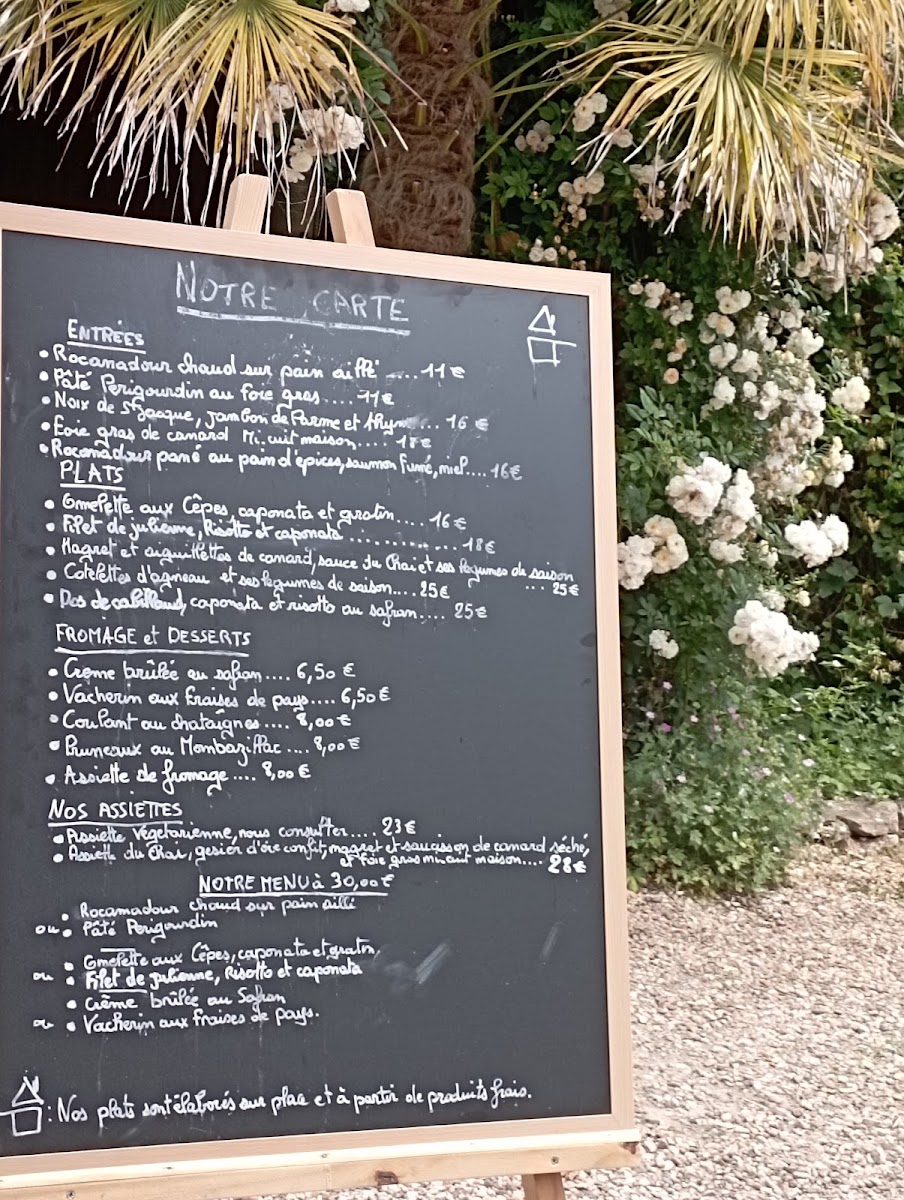 NOTRE CARTE
ENTRÉES
• Rocamadour chaud sur pain aillé .... 11 €
• Pâté Perigourdin au foie gras .... 11 €
• Noix de St Jacque, jambon de Parme et thym .... 16 €
• Foie gras de canard Mi.cuit maison .... 18 €
• Rocamadour pané au pain d'épices, saumon fumé, miel .... 16 €
PLATS
• Omelette aux Cêpes, caponata et gratin .... 16 €
• Filet de julienne, Risotto et caponata .............. 18 €
• Magret et aiguillettes de canard, sauce du Chai et ses légumes de saison
... 25 €
• Cotelettes d'agneau et ses legumes de saison .... 25 €
• Dos de cabillaud, caponata et risotto au safran .... 25 €
FROMAGE et DESSERTS
• Crème brûlée au safran .... 6,50 €
• Vacherin aux fraises de pays .... 6,50 €
• Coulant au chataignes .... 8,00 €
• Pruneaux au Monbazillac .... 8,00 €
• Assiette de fromage .... 8,00 €
NOS ASSIETTES
• Assiette Végétarienne, nous consulter .... 23 €
• Assiette du Chai, gesier d'oie confit, magret et saucisson de canard séché,
et foie gras mi cuit maison .... 28 €
NOTRE MENU à 30,00 €
• Rocamadour chaud sur pain aillé
ou • Pâté Perigourdin
• Omelette aux Cêpes, caponata et gratin,
ou • Filet de julienne, Risotto et caponata
• Crême brûlée au Safran
ou • Vacherin aux fraises de pays.
: Nos plats sont élaborés sur place et à partir de produits frais.